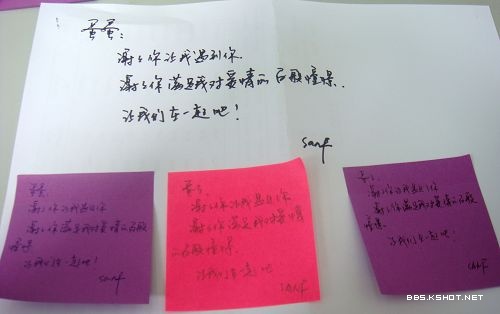 蛋蛋:
谢谢你让我遇到你.
谢谢你满足我对爱情的百般憧憬.
让我们在一起吧!
sanf
蛋蛋:
谢谢你让我遇到你
谢谢你满足我对爱情的百般
憧憬
让我们在一起吧!
sanf
蛋蛋:
谢谢你让我遇到你
谢谢你满足我对爱情
的百般憧憬.
让我们在一起吧
sanf
蛋蛋:
谢谢你让我遇到你
谢谢你满足我对爱情的百般
憧憬.
让我们在一起吧!
sanf
BBS.KSHOT.NET